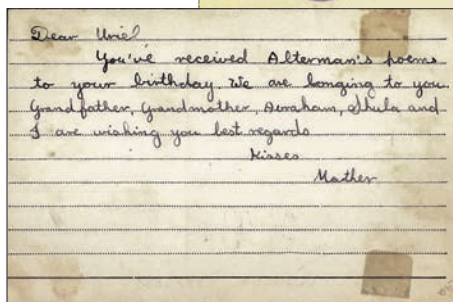 Dear Uriel
You've received Alterman's poems
to your birthday. We are longing to you
Grandfather, Grandmother, Avraham, Shula and
I are wishing you best regards
Kisses
Mother